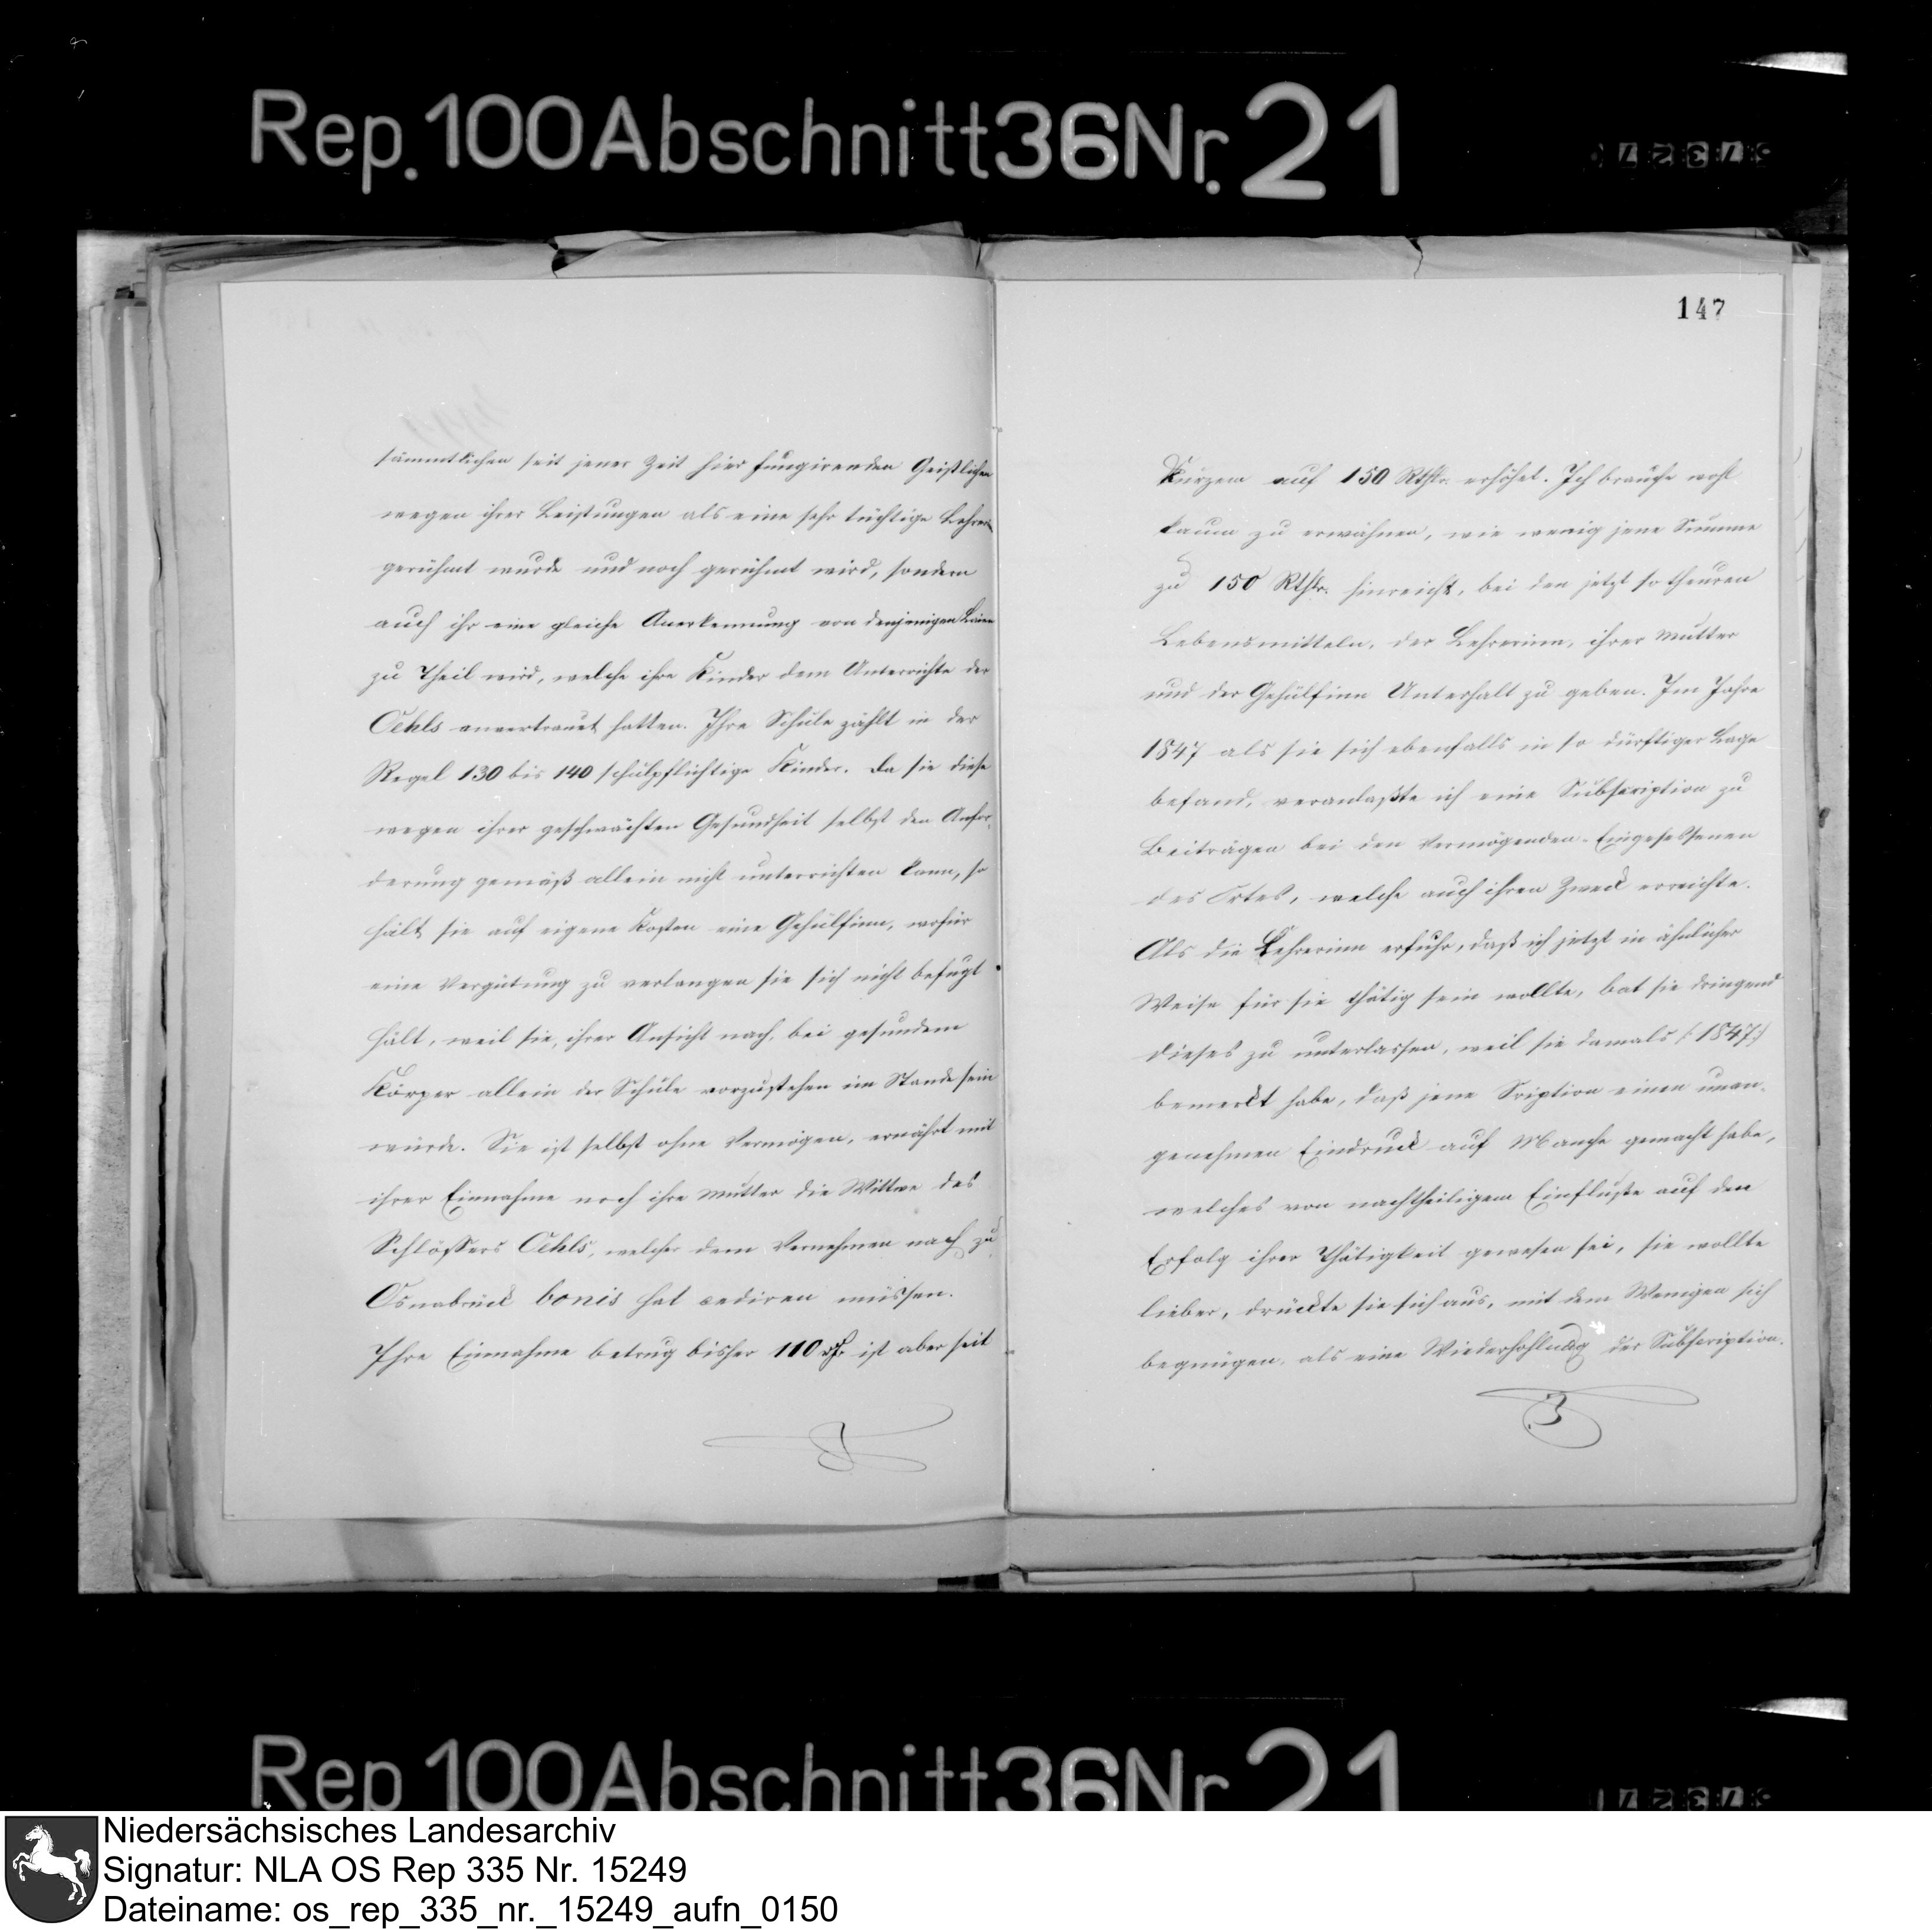 Rep. 100 Abschnitt 36 Nr. 21
sämmtlichen seit jener Zeit hier fungirenden Geistlichen
wegen ihrer Leistungen als eine sehr tüchtige Lehrerin
gerühmt wurde und noch gerühmt wird, sondern
auch ihr eine gleiche Anerkennung von denjenigen Laien
zu Theil wird, welche ihre Kinder dem Unterrichte der
Oehls anvertrauet hatten. Ihre Schule zählt in der
Regel 130 bis 140 schulpflichtige Kinder. Da sie diese
wegen ihrer geschwächten Gesundheit selbst den Anfor-
derung gemäß allein nicht unterrichten kann, so
hält sie auf eigene Kosten eine Gehülfinn, wofür
eine Vergütung zu verlangen sie sich nicht befugt
hält, weil sie, ihrer Ansicht nach, bei gesundem
Körper allein der Schule vorzustehen im Stande sein
würde. Sie ist selbst ohne Vermögen, ernährt mit
ihrer Einnahme noch ihre Mutter die Wittwe des
Schlössers Oehls, welcher dem Vernehmen nach zu
Osnabrück bonis hat cediren müssen.
Ihre Einnahme betrug bisher 110 rℓ ist aber seit
147
Kurzem auf 150 Rthlr. erhöhet. Ich brauche wohl
kaum zu erwähnen, wie wenig jene Summe
zu 150 Rthlr. hinreicht, bei den jetzt so theuren
Lebensmitteln, der Lehrerinn, ihrer Mutter
und der Gehülfinn Unterhalt zu geben. Im Jahre
1847 als sie sich ebenfalls in so dürftiger Lage
befand, veranlaßte ich eine Subscription zu
Beiträgen bei den Vermögenden-Eingesessenen
des Ortes, welche auch ihren Zweck erreichte.
Als die Lehrerinn erfuhr, daß ich jetzt in ähnlicher
Weise für sie thätig sein wollte, bat sie dringend
dieses zu unterlassen, weil sie damals (: 1847:)
bemerkt habe, daß jene Scription einen unan-
genehmen Eindruck auf Manche gemacht habe,
welches von nachtheiligem Einfluße auf den
Erfolg ihrer Thätigkeit gewesen sei, sie wollte
lieber, drückte sie sich aus, mit dem Wenigen sich
begnügen, als eine Wiederhohlung der Subscription.
Rep 100 Abschnitt 36 Nr 21
Niedersächsisches Landesarchiv
Signatur: NLA OS Rep 335 Nr. 15249
Dateiname: os_rep_335_nr._15249_aufn_0150